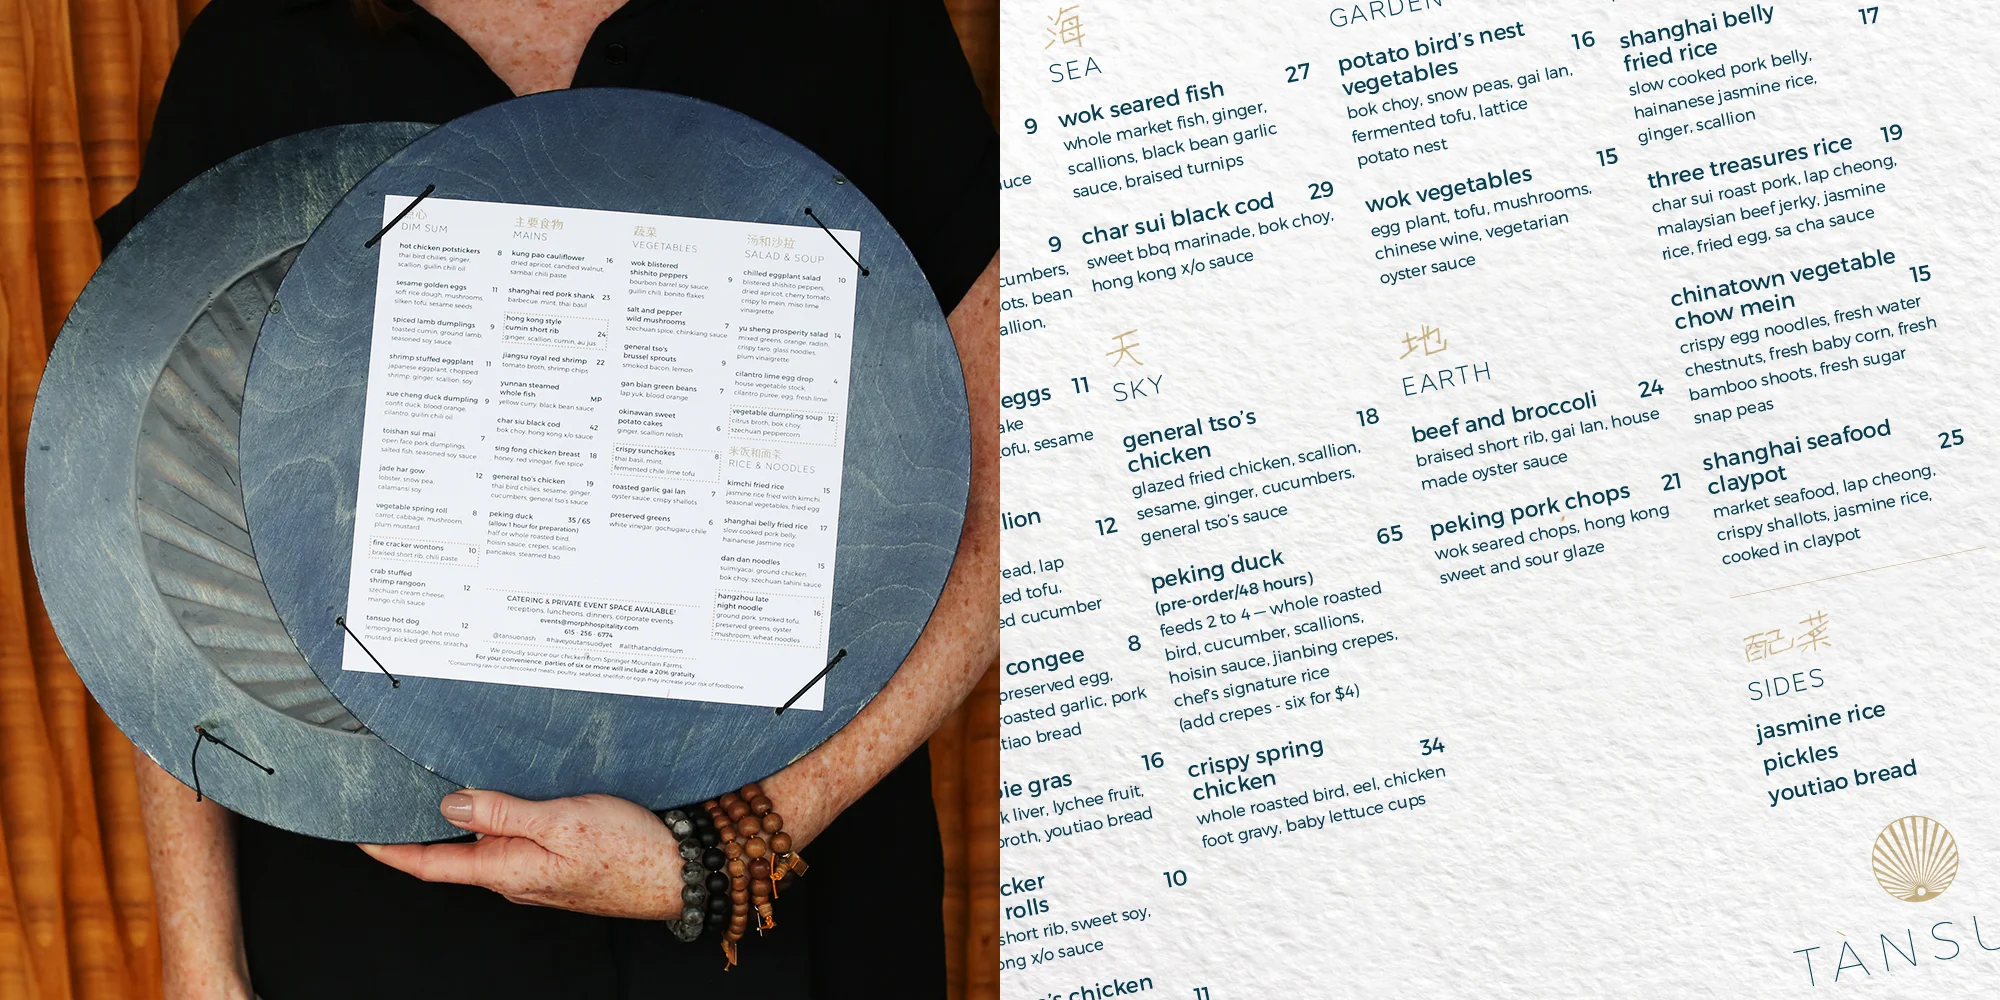 点心
DIM SUM
hot chicken potstickers 8
thai bird chilies, ginger,
scallion, guilin chili oil
sesame golden eggs 11
soft rice dough, mushrooms,
silken tofu, sesame seeds
spiced lamb dumplings 9
toasted cumin, ground lamb,
seasoned soy sauce
shrimp stuffed eggplant 11
japanese eggplant, chopped
shrimp, ginger, scallion, soy
xue cheng duck dumpling 9
confit duck, blood orange,
cilantro, guilin chili oil
toishan sui mai 7
open face pork dumplings,
salted fish, seasoned soy sauce
jade har gow 12
lobster, snow pea
calamansi soy
vegetable spring roll 8
carrot, cabbage, mushroom,
plum mustard
fire cracker wontons 10
braised short rib, chili paste
crab stuffed
shrimp rangoon 12
szechuan cream cheese,
mango chili sauce
tansuo hot dog 12
lemongrass sausage, hot miso
mustard, pickled greens, sriracha
主要食物
MAINS
kung pao cauliflower 16
dried apricot, candied walnut,
sambal chili paste
shanghai red pork shank 23
barbecue, mint, thai basil
hong kong style
cumin short rib 24
ginger, scallion, cumin, au jus
jiangsu royal red shrimp 22
tomato broth, shrimp chips
yunnan steamed
whole fish MP
yellow curry, black bean sauce
char siu black cod 42
bok choy, hong kong x/o sauce
sing fong chicken breast 18
honey, red vinegar, five spice
general tso's chicken 19
thai bird chilies, sesame, ginger,
cucumbers, general tso's sauce
peking duck 35 / 65
(allow 1 hour for preparation)
half or whole roasted bird,
hoisin sauce, crepes, scallion
pancakes, steamed bao
蔬菜
VEGETABLES
wok blistered
shishito peppers 9
bourbon barrel soy sauce
guilin chili, bonito flakes
salt and pepper
wild mushrooms 7
szechuan spice, chinkiang sauce
general tso's
brussel sprouts 9
smoked bacon, lemon
gan bian green beans 7
lap yuk, blood orange
okinawan sweet
potato cakes 6
ginger, scallion relish
crispy sunchokes 8
thai basil, mint,
fermented chile lime tofu
roasted garlic gai lan 7
oyster sauce, crispy shallots
preserved greens 6
white vinegar, gochugaru chile
汤和沙拉
SALAD & SOUP
chilled eggplant salad 10
blistered shishito peppers,
dried apricot, cherry tomato,
crispy lo mein, miso lime
vinaigrette
yu sheng prosperity salad 14
mixed greens, orange, radish,
crispy taro, glass noodles,
plum vinaigrette
cilantro lime egg drop 4
house vegetable stock,
cilantro puree, egg, fresh lime
vegetable dumpling soup 12
citrus broth, bok choy,
szechuan peppercorn
米饭和面条
RICE & NOODLES
kimchi fried rice 15
jasmine rice fried with kimchi,
seasonal vegetables, fried egg
shanghai belly fried rice 17
slow cooked pork belly,
hainanese jasmine rice
dan dan noodles 15
suimiyacai, ground chicken,
bok choy, szechuan tahini sauce
hangzhou late
night noodle 16
ground pork, smoked tofu,
preserved greens, oyster
mushroom, wheat noodles
CATERING & PRIVATE EVENT SPACE AVAILABLE!
receptions, luncheons, dinners, corporate events
events@morphhospitality.com
615 · 256 · 6774
@tansuonash #haveyoutansuodyet #allthatanddimsum
We proudly source our chicken from Springer Mountain Farms.
For your convenience, parties of six or more will include a 20% gratuity.
*Consuming raw or undercooked meats, poultry, seafood, shellfish or eggs may increase your risk of foodborne
9
auce
9
cumbers,
ots, bean
allion,
eggs 11
ake
ofu, sesame
lion
12
read, lap
ed tofu,
ed cucumber
congee 8
preserved egg,
roasted garlic, pork
tiao bread
ie gras 16
k liver, lychee fruit,
broth, youtiao bread
cker 10
rolls
short rib, sweet soy,
ong x/o sauce
o's chicken 11
海
SEA
wok seared fish 27
whole market fish, ginger,
scallions, black bean garlic
sauce, braised turnips
char sui black cod 29
sweet bbq marinade, bok choy,
hong kong x/o sauce
天
SKY
general tso's 18
chicken
glazed fried chicken, scallion,
sesame, ginger, cucumbers,
general tso's sauce
peking duck 65
(pre-order/48 hours)
feeds 2 to 4 — whole roasted
bird, cucumber, scallions,
hoisin sauce, jianbing crepes,
chef's signature rice
(add crepes - six for $4)
crispy spring 34
chicken
whole roasted bird, eel, chicken
foot gravy, baby lettuce cups
GARDEN
potato bird's nest 16
vegetables
bok choy, snow peas, gai lan,
fermented tofu, lattice
potato nest
wok vegetables 15
egg plant, tofu, mushrooms,
chinese wine, vegetarian
oyster sauce
地
EARTH
beef and broccoli 24
braised short rib, gai lan, house
made oyster sauce
peking pork chops 21
wok seared chops, hong kong
sweet and sour glaze
shanghai belly 17
fried rice
slow cooked pork belly,
hainanese jasmine rice,
ginger, scallion
three treasures rice 19
char sui roast pork, lap cheong,
malaysian beef jerky, jasmine
rice, fried egg, sa cha sauce
chinatown vegetable 15
chow mein
crispy egg noodles, fresh water
chestnuts, fresh baby corn, fresh
bamboo shoots, fresh sugar
snap peas
shanghai seafood 25
claypot
market seafood, lap cheong,
crispy shallots, jasmine rice,
cooked in claypot
配菜
SIDES
jasmine rice
pickles
youtiao bread
TÀNSU